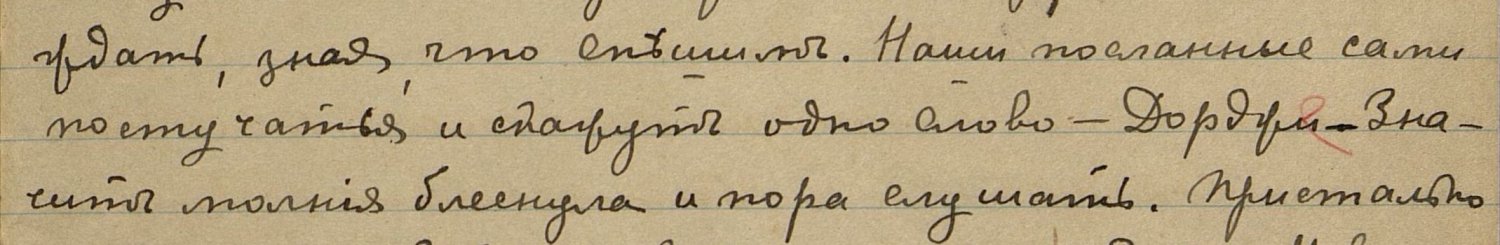 ждать, зная, что спѣшимъ. Наши посланные сами
постучатся и скажутъ одно слово – Дордже – Зна-
читъ молнія блеснула и пора слушать. Пристально